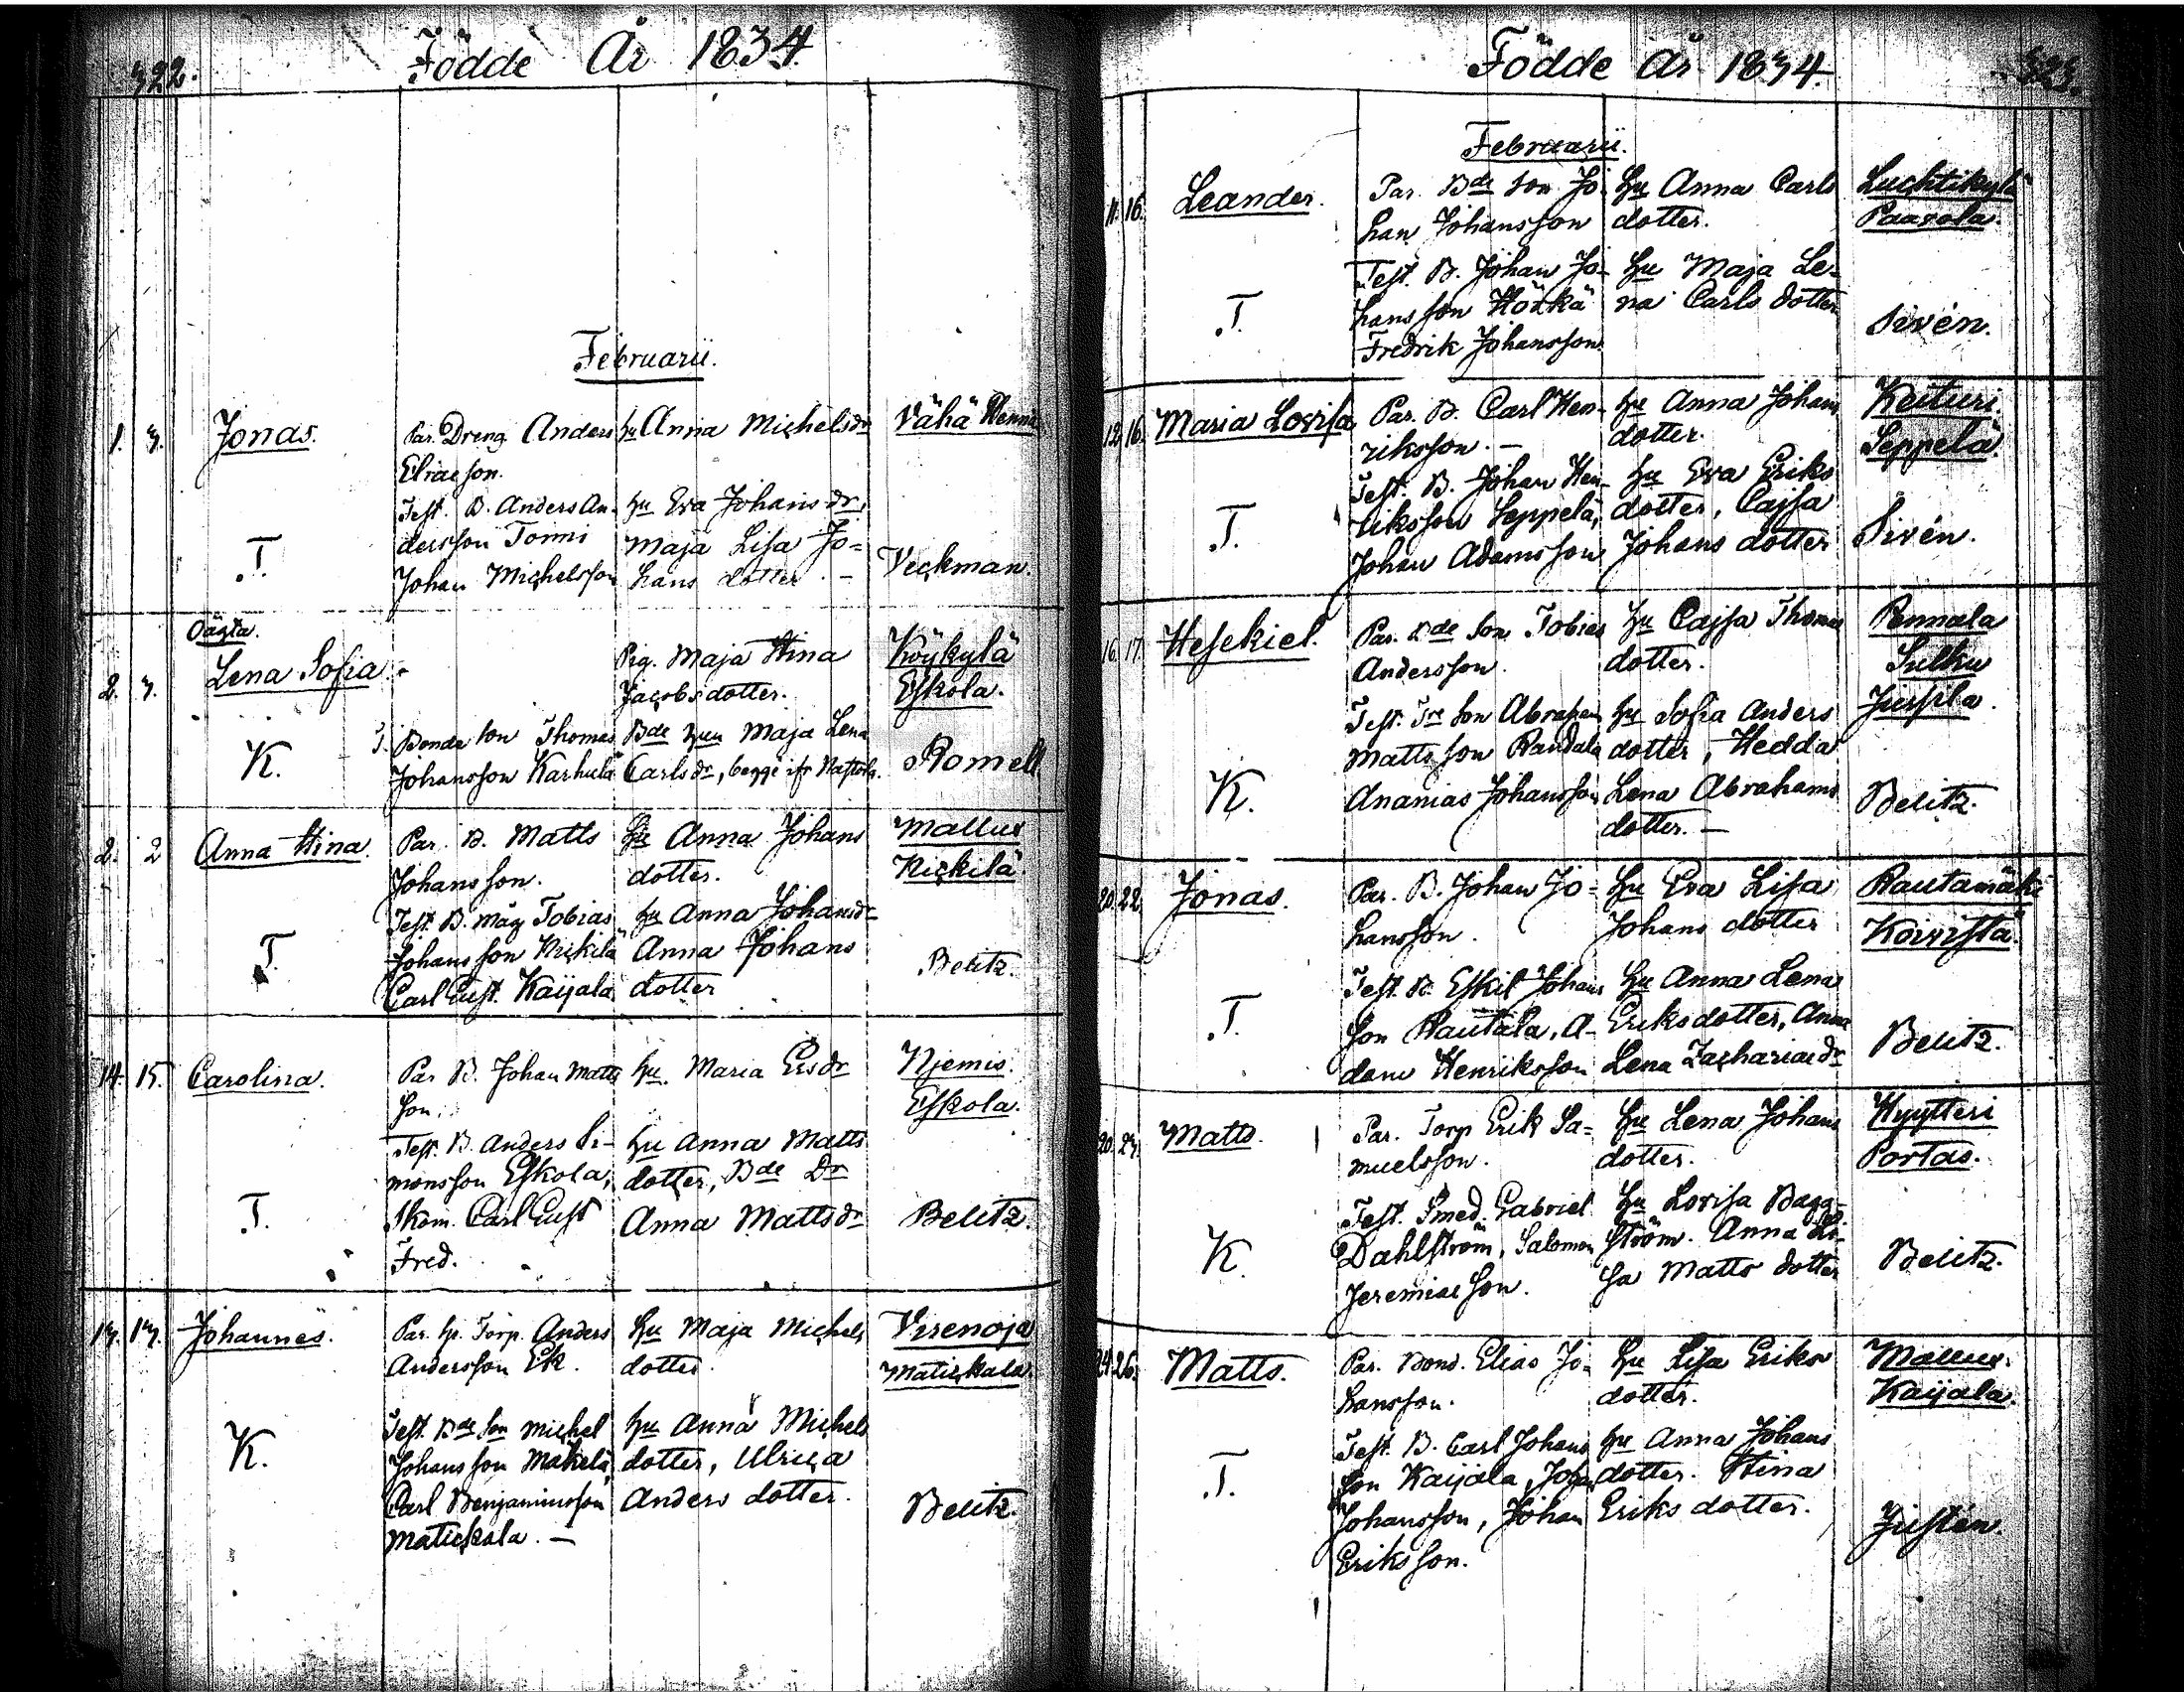 322.
Födde År 1834.
Februarii.
1. 3. Jonas. Par. Dreng Anders hu Anna Michelsdr Vähä
Eliaeson.
Test. B. Anders An- hu Eva Johans dr,
dersson Tommi Maja Lisa Jo=
T. Johan Michelsson hans dotter. — Veckman.
Oägta.
2. 3. Lena Sofia. Pig. Maja Stina Köykylä
Jacobsdotter. Eskola.
T. Bonde son Thomas Bde hun Maja Lena
K. Johansson Karhula Carls dr, begge ifr Nastola. Romell
2. 2 Anna Stina. Par. B. Matts hu Anna Johans Mallus
Johansson. dotter. Nickilä.
Test. B. måg Tobias hu Anna Johansdr
T. Johansson Nickilä Anna Johans Belitz.
Carl Gust. Kaijala dotter
14. 15. Carolina. Par B. Johan Matts hu. Maria Ersdr Njemis.
son. Eskola.
Test. B. Anders Si- hu Anna Matts
monsson Eskola, dotter, Bde Dr
T. Skom. Carl Gust Anna Mattsdr Belitz.
Fred.
13. 13. Johannes. Par. hr. Torp. Anders hu Maja Michels Virenoja
Andersson Ek. dotter. Matickala.
Test. Bde son Michel hu Anna Michels
K. Johansson Mäkelä, dotter, Ulrica
Carl Benjaminsson Anders dotter. Belitz.
Matickala. —
323.
Födde år 1834.
Februarii.
11. 16. Leander. Par. Bde son Jo- hu Anna Carls Luchtikylä
han Johansson dotter. Paavola.
Test. B. Johan Jo- hu Maja Le-
T. hansson Hörkä na Carls dotter Sirén.
Fredrik Johansson.
12. 16. Maria Lovisa Par. B. Carl Hen- hu Anna Johans Keituri.
riksson. — dotter. Seppelä.
Test. B. Johan Hen- hu Eva Eriks
T. riksson Seppelä, dotter, Cajsa Sirén.
Johan Adamsson Johans dotter
16. 17. Hesekiel. Par. Bde son Tobias hu Cajsa Thomas Pennala
Andersson. dotter. Sulku
Test. Tr son Abraham hu Sofia Anders Jussila.
Mattsson Randala dotter, Hedda
K. Ananias Johansson Lena Abrahams Belitz.
dotter. —
20. 22. Jonas. Par. B. Johan Jo= hu Eva Lisa Rautamäki
hansson. Johans dotter Koivista.
Test. B. Eskil Johans hu Anna Lena
T. son Rautala, A- Eriksdotter, Anna Belitz.
dam Henriksson Lena Zachariaedr
20. 23. Matts. Par. Torp Erik Sa= hu Lena Johans Hyytteri
muelsson. dotter. Portas.
Test. Smed. Gabriel hu Lovisa Bagg-
K. Dahlström, Salomon ström. Anna Li- Belitz.
Jeremiaeson. sa Matts dotter
24. 26. Matts. Par. Bond. Elias Jo- hu Lisa Eriks Mallus.
hansson. dotter. Kaijala.
Test. B. Carl Johans hu Anna Johans
T. son Kaijala, Johan dotter. Stina
Johansson, Johan Eriks dotter. Justén.
Eriksson.